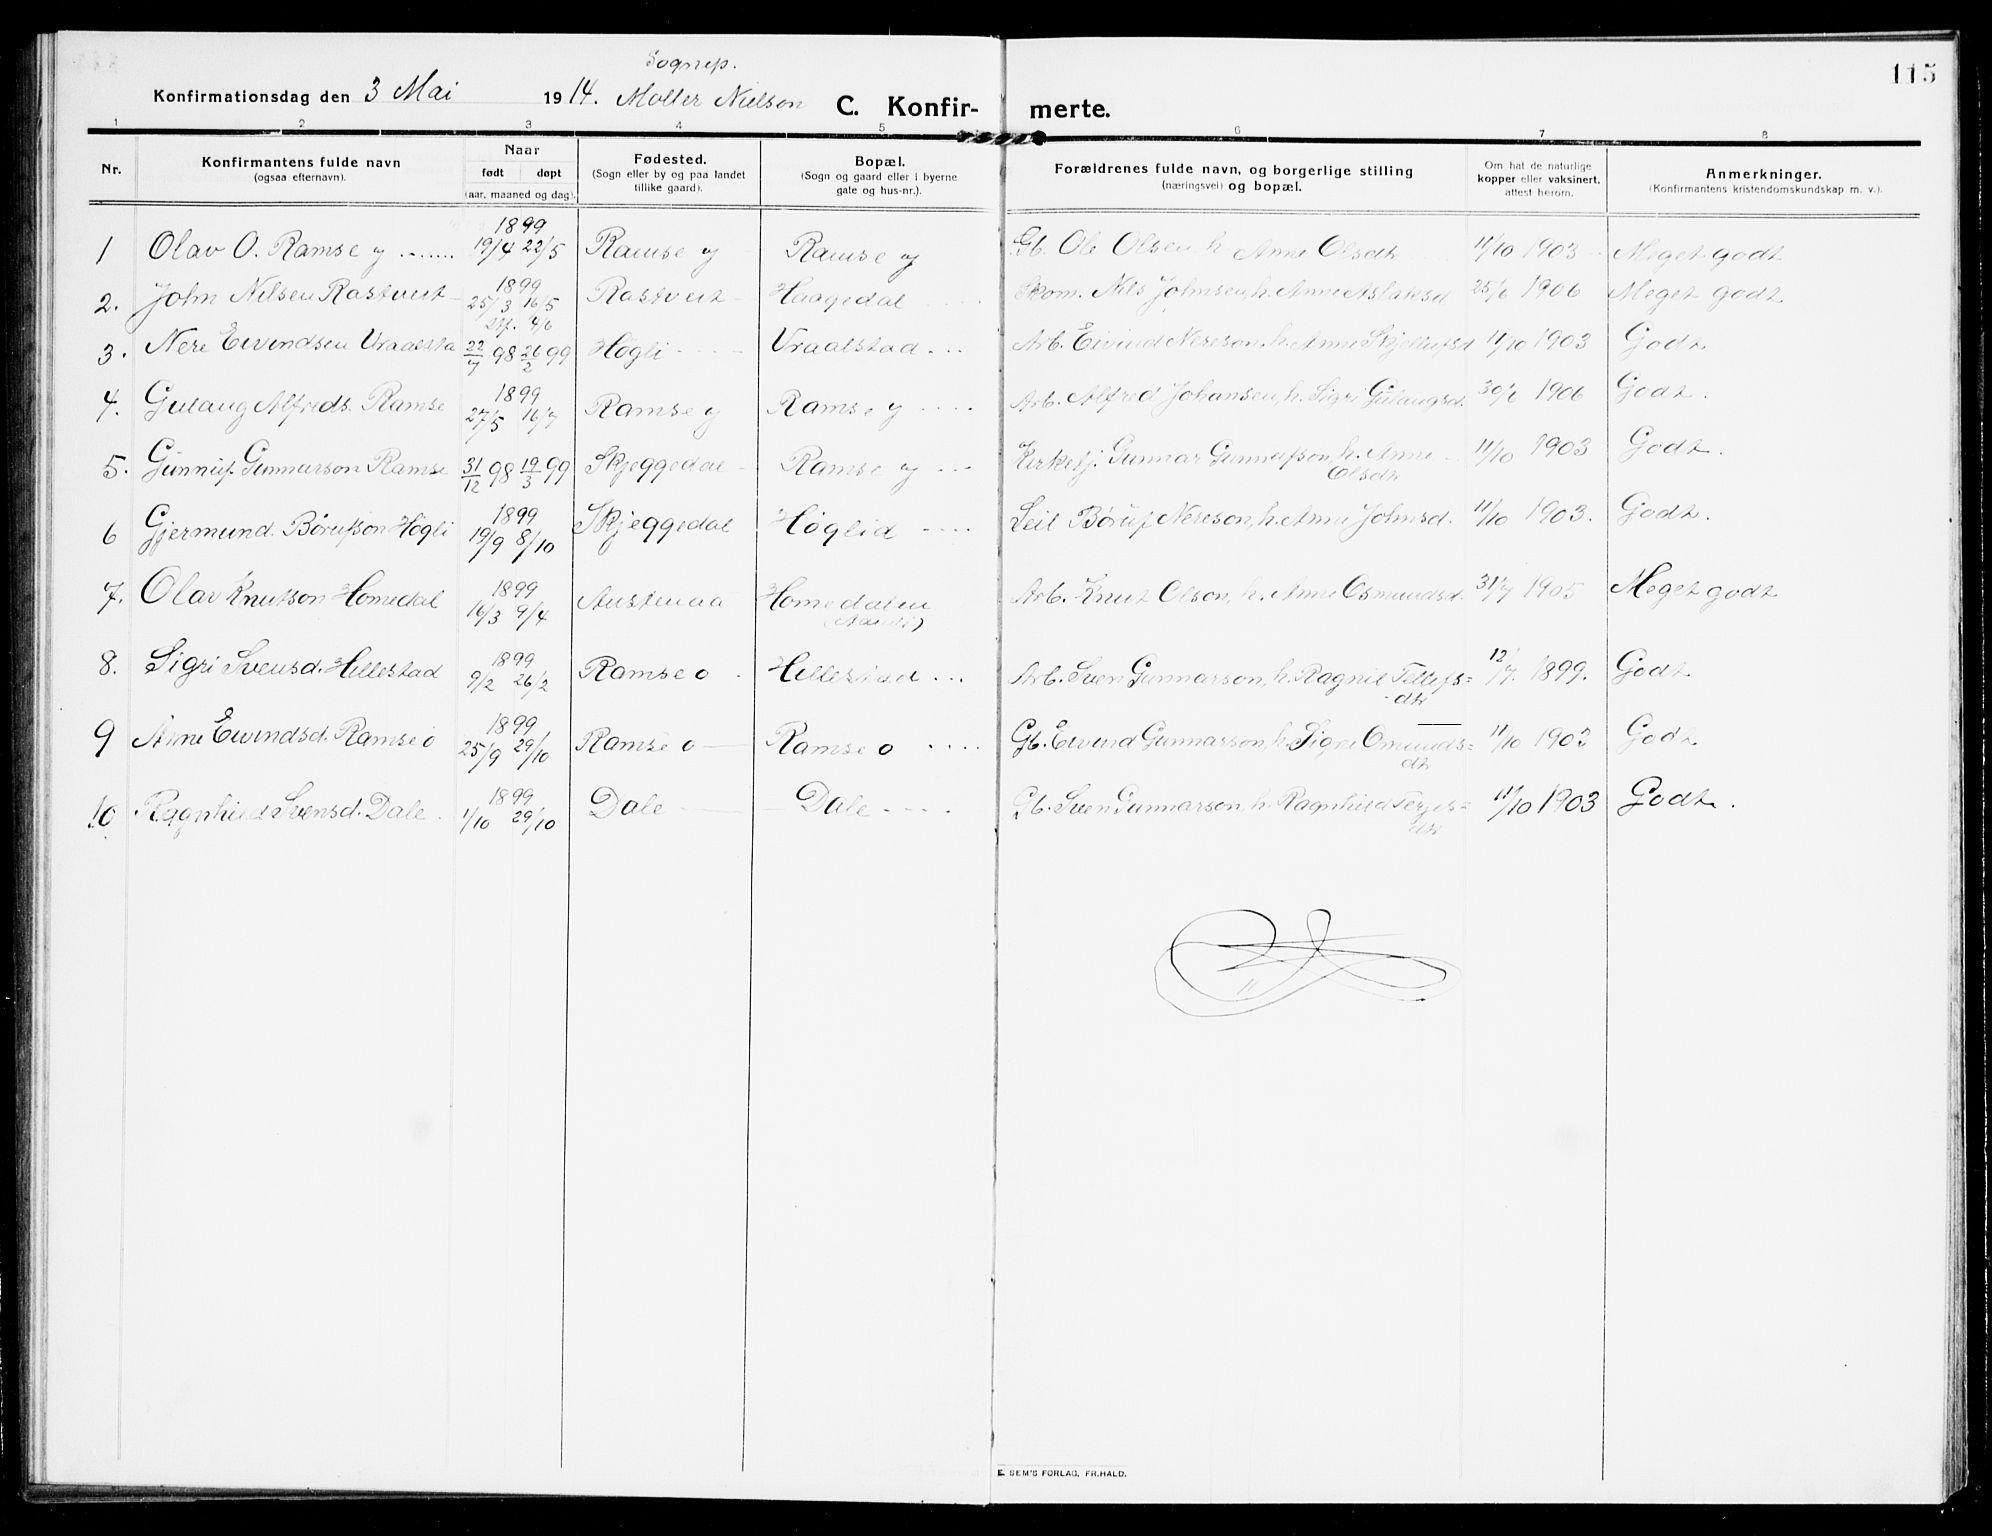 115
Sognep.
Konfirmationsdag den 3 Mai 1914. Møller Nielson C. Konfir- merte.
1 2 3 4 5 6 7 8
Nr. Konfirmantens fulde navn (ogsaa efternavn). Naar født døpt (aar, maaned og dag). Fødested. (Sogn eller by og paa landet tillike gaard). Bopæl. (Sogn og gaard eller i byerne gate og hus-nr.). Forældrenes fulde navn, og borgerlige stilling (næringsvei) og bopæl. Om hat de naturlige kopper eller vaksinert, attest herom. Anmerkninger. (Konfirmantens kristendomskundskap m. v.).
1 Olav O. Ramse y ....... 1899 19/4 22/5 Ramse y Ramse y Gb. Ole Olsen h. Anne Olsdtr 11/10 1903 Meget godt
2. John Nilsen Rastveit 1899 25/3 16/5 Rastveit Haagedal Skom. Nils Johnsen, h. Anne Aslaksd 25/6 1906 Meget godt
3. Nere Eivindsen Vraalsta 22/7 98 26/2 99 Høgli Vraalstad ... Arb. Eivind Nereson, h. Anne Skjellufsd 11/10 1903 Godt
4. Gulaug Alfreds. Ramse 1899 27/5 16/7 Ramse y Ramse y .... Arb. Alfred Johansen, h. Sigri Gulaugsd. 30/6 1906 Godt.
5. Gunnuf. Gunnarson Ramse 31/12 98 19/3 99 Skjeggedal Ramse y ... Kirketj. Gunnar Gunnufson, h. Anne Olsdtr 11/10 1903 Godt.
6 Gjermund. Børufson Høgli 1899 19/9 8/10 Skjeggedal Høglid .... Leil Børuf Nereson, h. Anne Johnsd. 11/10 1903. Godt.
7. Olav Knutson Homedal 1899 14/3 9/4 Austenaa Homedalen Arb. Knut Olson, h. Anne Osmundsd. 31/7 1905 Meget godt
8. Sigri Svensd. Hillestad 1899 9/2 26/2 Ramse ø . Hillestad ... Arb. Sven Gunnarson, h. Ragnil Tellefs=dtr 12/7. 1899. Godt
9 Anne Eivindsd. Ramse ø 1899 25/9 29/10 Ramse ø Ramse ø .... Gb. Eivind Gunnarson, h. Sigri Omunds=dtr 11/10 1903 Godt
10 Ragnhild Svensd. Dale. 1899 1/10 29/10 Dale Dale .... Gb. Sven Gunnarson, h. Ragnhild Terjes=dtr 11/10 1903 Godt.
E. SEM'S FORLAG, FR.HALD.